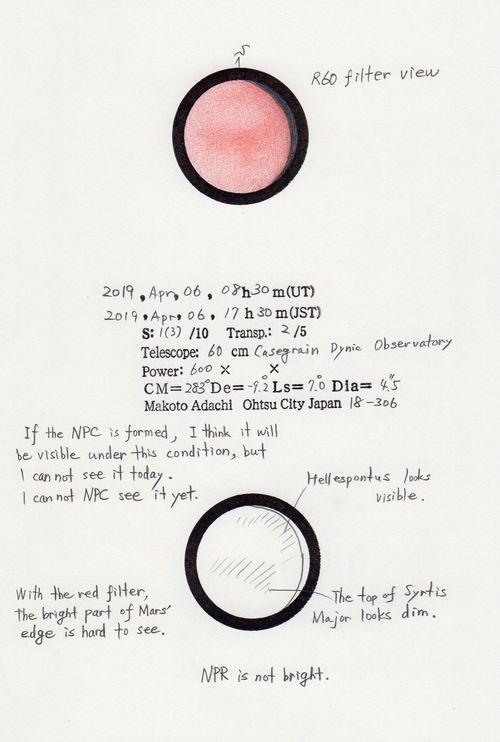 S
R60 filter view
2019, Apr, 06, 08h 30 m(UT)
2019, Apr, 06, 17 h 30 m(JST)
S: 1(3) /10 Transp.: 2 /5
Telescope: 60 cm Casegrain Dynic Observatory
Power: 600 × ×
CM= 283° De= -9.2° Ls= 7.0° Dia= 4.5"
Makoto Adachi Ohtsu City Japan 18-306
If the NPC is formed, I think it will
be visible under this condition, but
I can not see it today.
I can not NPC see it yet.
Hellespontus looks
visible.
With the red filter,
the bright part of Mars'
edge is hard to see.
The top of Syrtis
Major looks dim.
NPR is not bright.